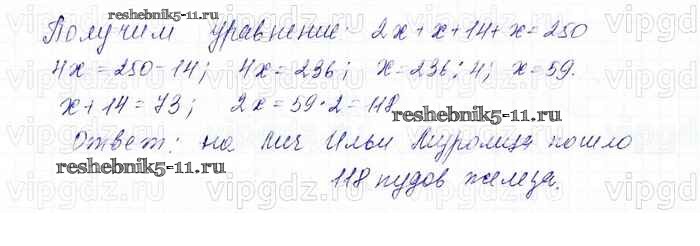 reshebnik5-11.ru
Получим уравнение: 2x+x+14+x=250
4x=250-14; 4x=236; x=236:4; x=59.
x+14=73; 2x=59·2=118
reshebnik5-11.ru
Ответ: на меч Ильи Муромца пошло
reshebnik5-11.ru
118 пудов железа.